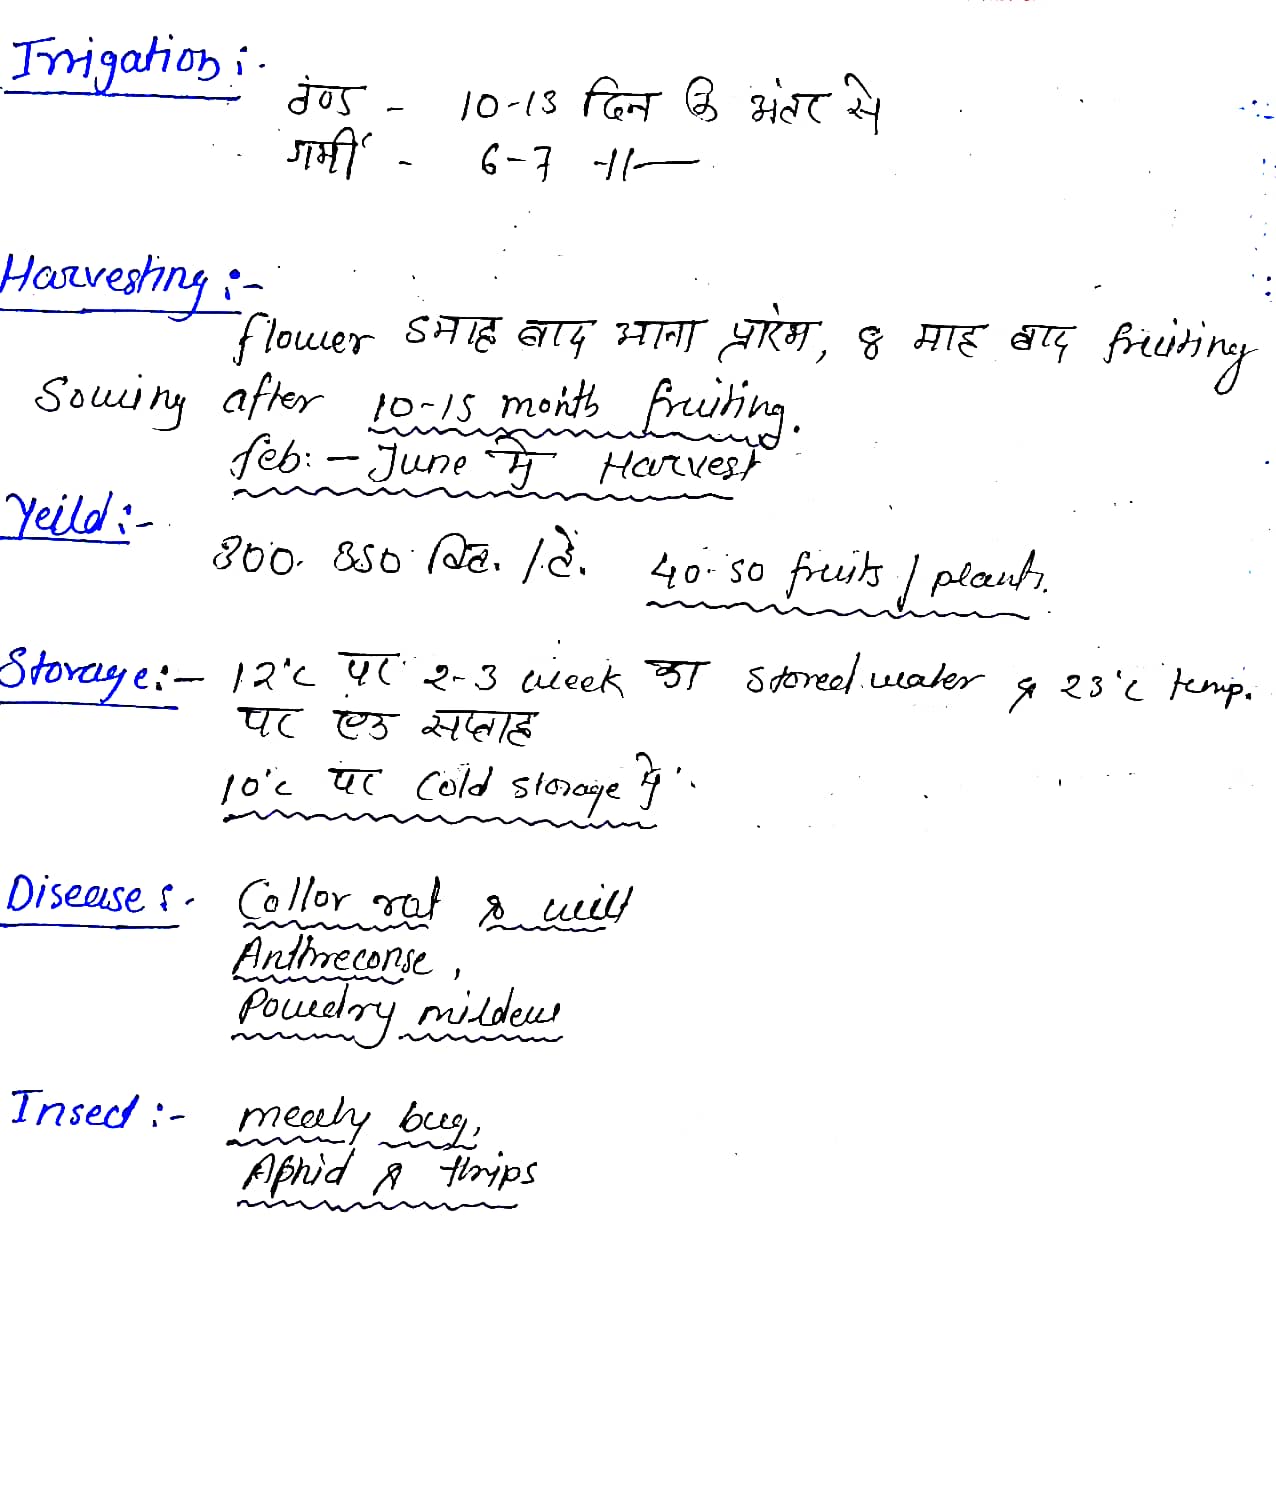 Irrigation :-
ठंण्ड - 10-13 दिन के अंतर से
गर्मी - 6-7 -11-
Harvesting :-
flower 5माह बाद आना प्रारंभ, 8 माह बाद fruiting
Sowing after 10-15 month fruiting.
feb: - June मे Harvest
Yeild :-
300. 350 क्वि. / हे. 40-50 fruits / plants.
Storage :- 12°c पर 2-3 week का stored. water & 23°c temp.
पर एउ सप्ताह
10°c पर Cold storage में.
Disease :- Collor rot & wilt
Anthreconse,
Powedry mildew
Insect :- mealy bug,
Aphid & thrips